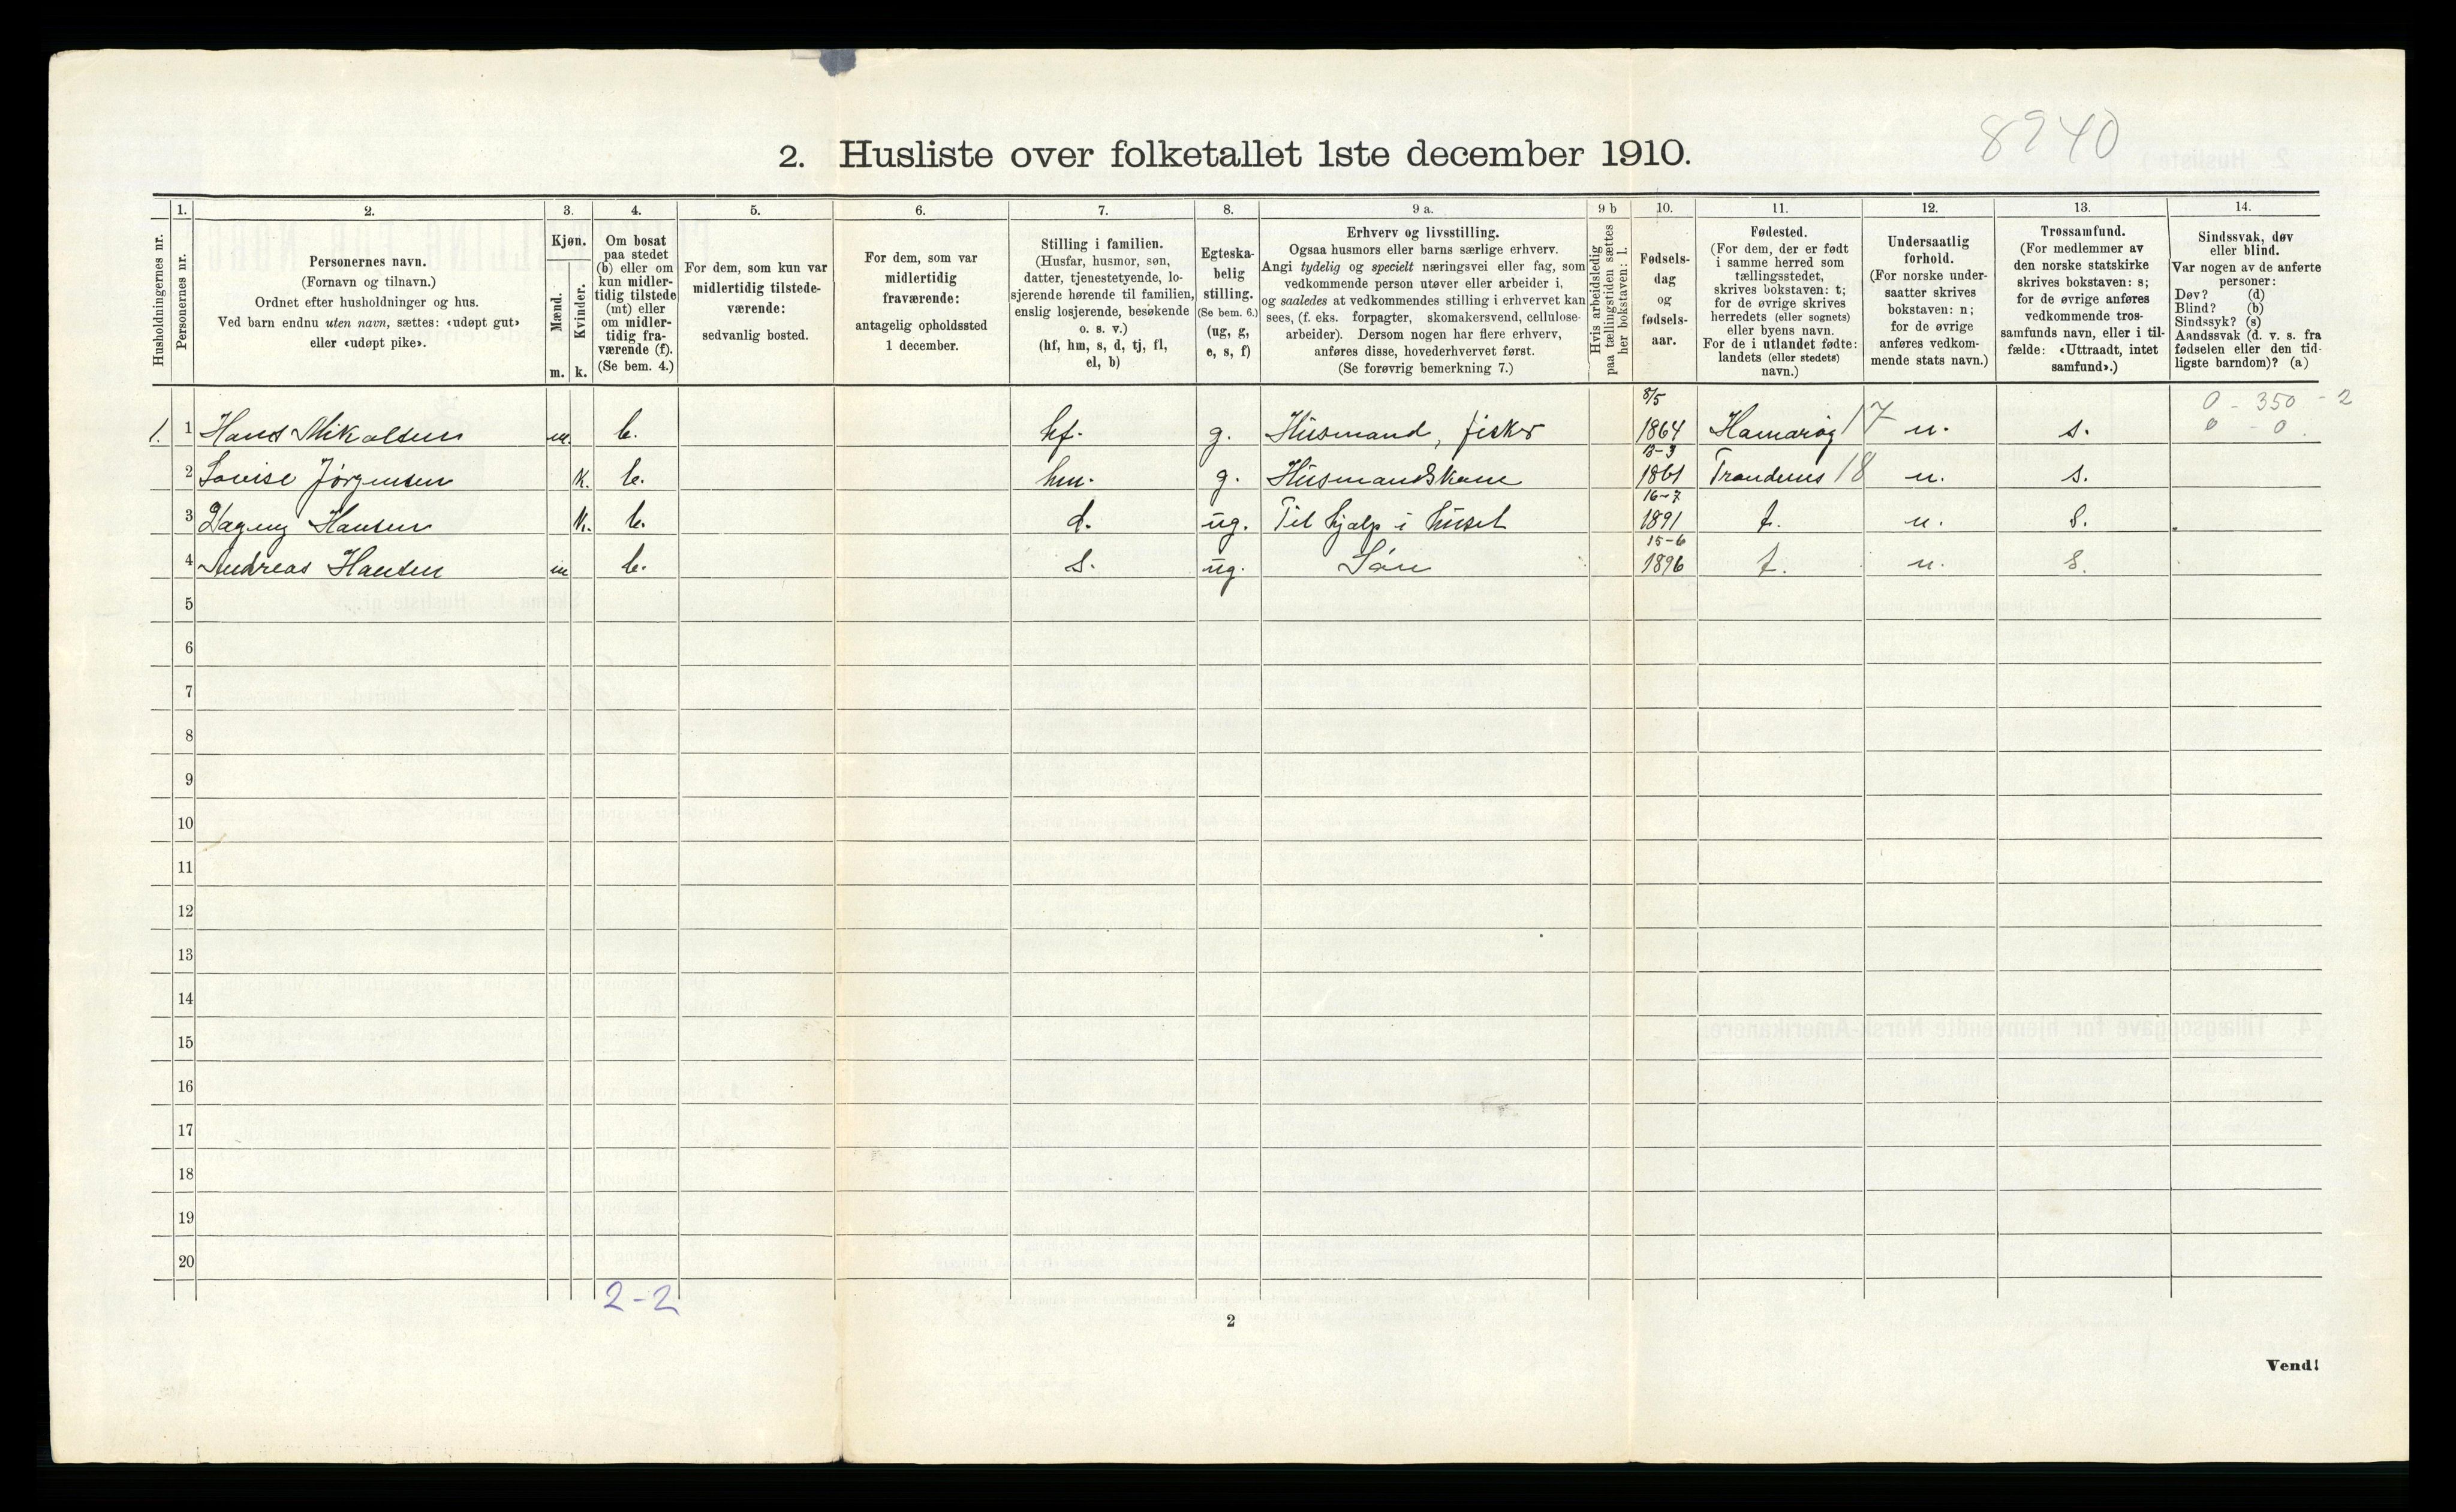 8940
2. Husliste over folketallet 1ste december 1910.
Husholdningernes nr.
1. 2. 3. 4. 5. 6. 7. 8. 9 a. 9 b 10. 11. 12. 13. 14.
Personernes nr.
Personernes navn.
(Fornavn og tilnavn.)
Ordnet efter husholdninger og hus.
Ved barn endnu uten navn, sættes: «udøpt gut»
eller «udøpt pike».
Kjøn.
Mænd.
Kvinder.
m. k.
Om bosat
paa stedet
(b) eller om
kun midler-
tidig tilstede
(mt) eller
om midler-
tidig fra-
værende (f).
(Se bem. 4.)
For dem, som kun var
midlertidig tilstede-
værende:
sedvanlig bosted.
For dem, som var
midlertidig
fraværende:
antagelig opholdssted
1 december.
Stilling i familien.
(Husfar, husmor, søn,
datter, tjenestetyende, lo-
sjerende hørende til familien,
enslig losjerende, besøkende
o. s. v.)
(hf, hm, s, d, tj, fl,
el, b)
Egteska-
belig
stilling.
(Se bem. 6.)
(ug, g,
e, s, f)
Erhverv og livsstilling.
Ogsaa husmors eller barns særlige erhverv.
Angi tydelig og specielt næringsvei eller fag, som
vedkommende person utøver eller arbeider i,
og saaledes at vedkommendes stilling i erhvervet kan
sees, (f. eks. forpagter, skomakersvend, cellulose-
arbeider). Dersom nogen har flere erhverv,
anføres disse, hovederhvervet først.
(Se forøvrig bemerkning 7.)
Hvis arbeidsledig
paa tællingstiden sættes
her bokstaven: l.
Fødsels-
dag
og
fødsels-
aar.
Fødested.
(For dem, der er født
i samme herred som
tællingsstedet,
skrives bokstaven: t;
for de øvrige skrives
herredets (eller sognets)
eller byens navn.
For de i utlandet fødte:
landets (eller stedets)
navn.)
Undersaatlig
forhold.
(For norske under-
saatter skrives
bokstaven: n;
for de øvrige
anføres vedkom-
mende stats navn.)
Trossamfund.
(For medlemmer av
den norske statskirke
skrives bokstaven: s;
for de øvrige anføres
vedkommende tros-
samfunds navn, eller i til-
fælde: «Uttraadt, intet
samfund».)
Sindssvak, døv
eller blind.
Var nogen av de anførte
personer:
Døv? (d)
Blind? (b)
Sindssyk? (s)
Aandssvak (d. v. s. fra
fødselen eller den tid-
ligste barndom)? (a)
8/5 0 - 350 - 2
1. 1 Hans Mikalsen m. b. hf. g. Husmand, fisker 1864 Hamarøy 17 n. s. 0 - 0.
13-3
2 Lovise Jørgensen k. b. hm. g. Husmandskone 1861 Trondenes 18 n. s.
16-7
3 Dagny Hansen k. b. d. ug. Til hjælp i huset 1891 t. n. s.
15-6
4 Andreas Hansen m b. s. ug. Søn 1896 t. n. s.
5
6
7
8
9
10
11
12
13
14
15
16
17
18
19
20
2-2
2
Vend!